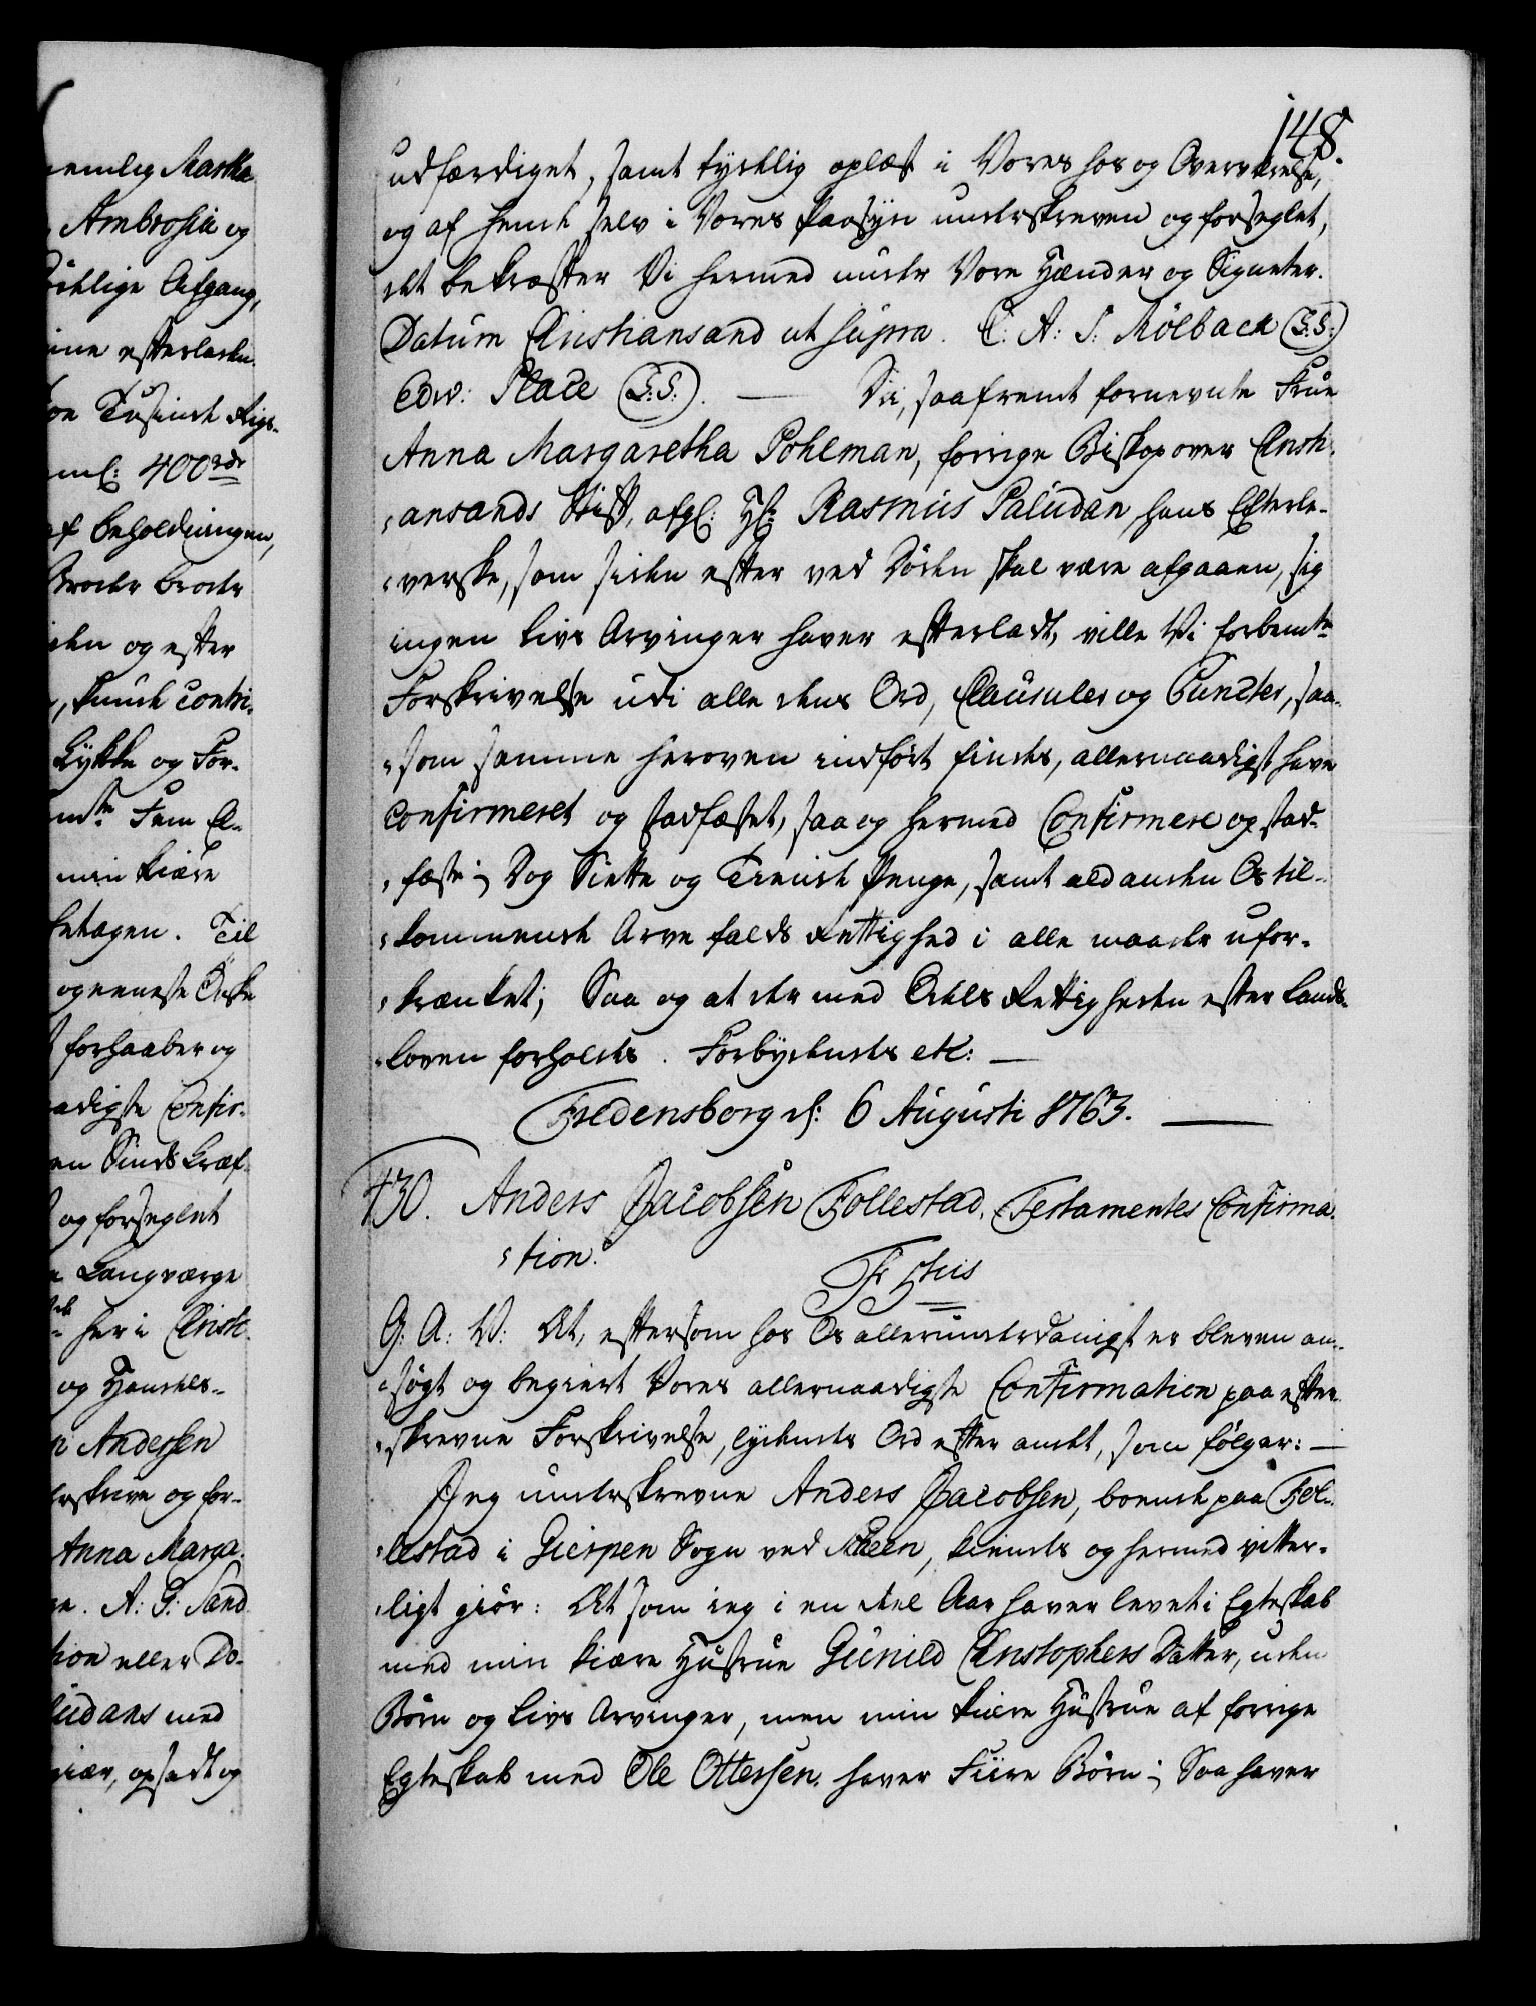 148.
udfærdiget, samt tydelig oplæst i Vores hos og Overværelse,
og af hende selv i Vores Paasyn underskreven og forseglet,
det bekræfter Vi hermed under Vore Hænder og Signeter.
Datum Christiansand ut supra. C: A: S: Mölback (L.S.)
Edw: Place (L.S.). — Da, saafremt fornevnte Frue
Anna Margaretha Pohlman, forrige Biskop over Christi-
ansands Stift, afg: Hr: Rasmus Paludan, hans Efterle-
verske, som siden efter ved Døden skal være afgaaen, sig
ingen Livs Arvinger haver efterladt, ville Vi forbemte
Forskrivelse udi alle dens Ord, Clausuler og Puncter, saa-
som samme heroven indført findes, allernaadigst have
Confirmeret og stadfæstet, saa og hermed Confirmere og stad-
fæste; Dog Siette og Tiende Penge, samt ald anden Os til-
kommende Arve falds Rettighed i alle maader ufor-
krænket; Saa og at der med Odels Rettigheden efter Lands-
loven forholdes. Forbydendes etc: —
Fredensborg d: 6 Augusti 1763. —
430. Anders Jacobsen Follestad, Testamentes Confirma-
tion.
Fr 5tus
G: A: V: At, eftersom hos Os allerunderdanigst er bleven an-
søgt og begiert Vores allernaadigste Confirmation paa efter-
skrevne Forskrivelse, lydendes Ord efter andet, som følger: —
Jeg underskrevne Anders Jacobsen, boende paa Fol-
lestad i Gierpen Sogn ved Skeen, kiendes og hermed vitter-
ligt giør: At som jeg i en deel Aar haver levet i Egteskab
med min kiære Hustrue Gunild Christophers Datter, uden
Børn og Livs Arvinger, men min kiære Hustrue af forrige
Egteskab med Ole Ottersen, haver Fiire Børn; Saa haver
nemlig Martha
Ambrosia og
dødelige Afgang,
mine efterladen.
Tusinde Rigs-
400rdr
af Beholdningen,
Broder
og efter
, kunde contri-
Lykke og For-
Fem
min kiære
betagen. Til
og eeneste Ønske
forhaaber og
naadigste Confir-
Sinds Kræf-
og forseglet
Laugværge
her i Christi-
og Handels-
Andersen
underskrive og for-
Anna Marga-
A: G: Sand
tion eller Do-
ludans med
giær, opsadt og